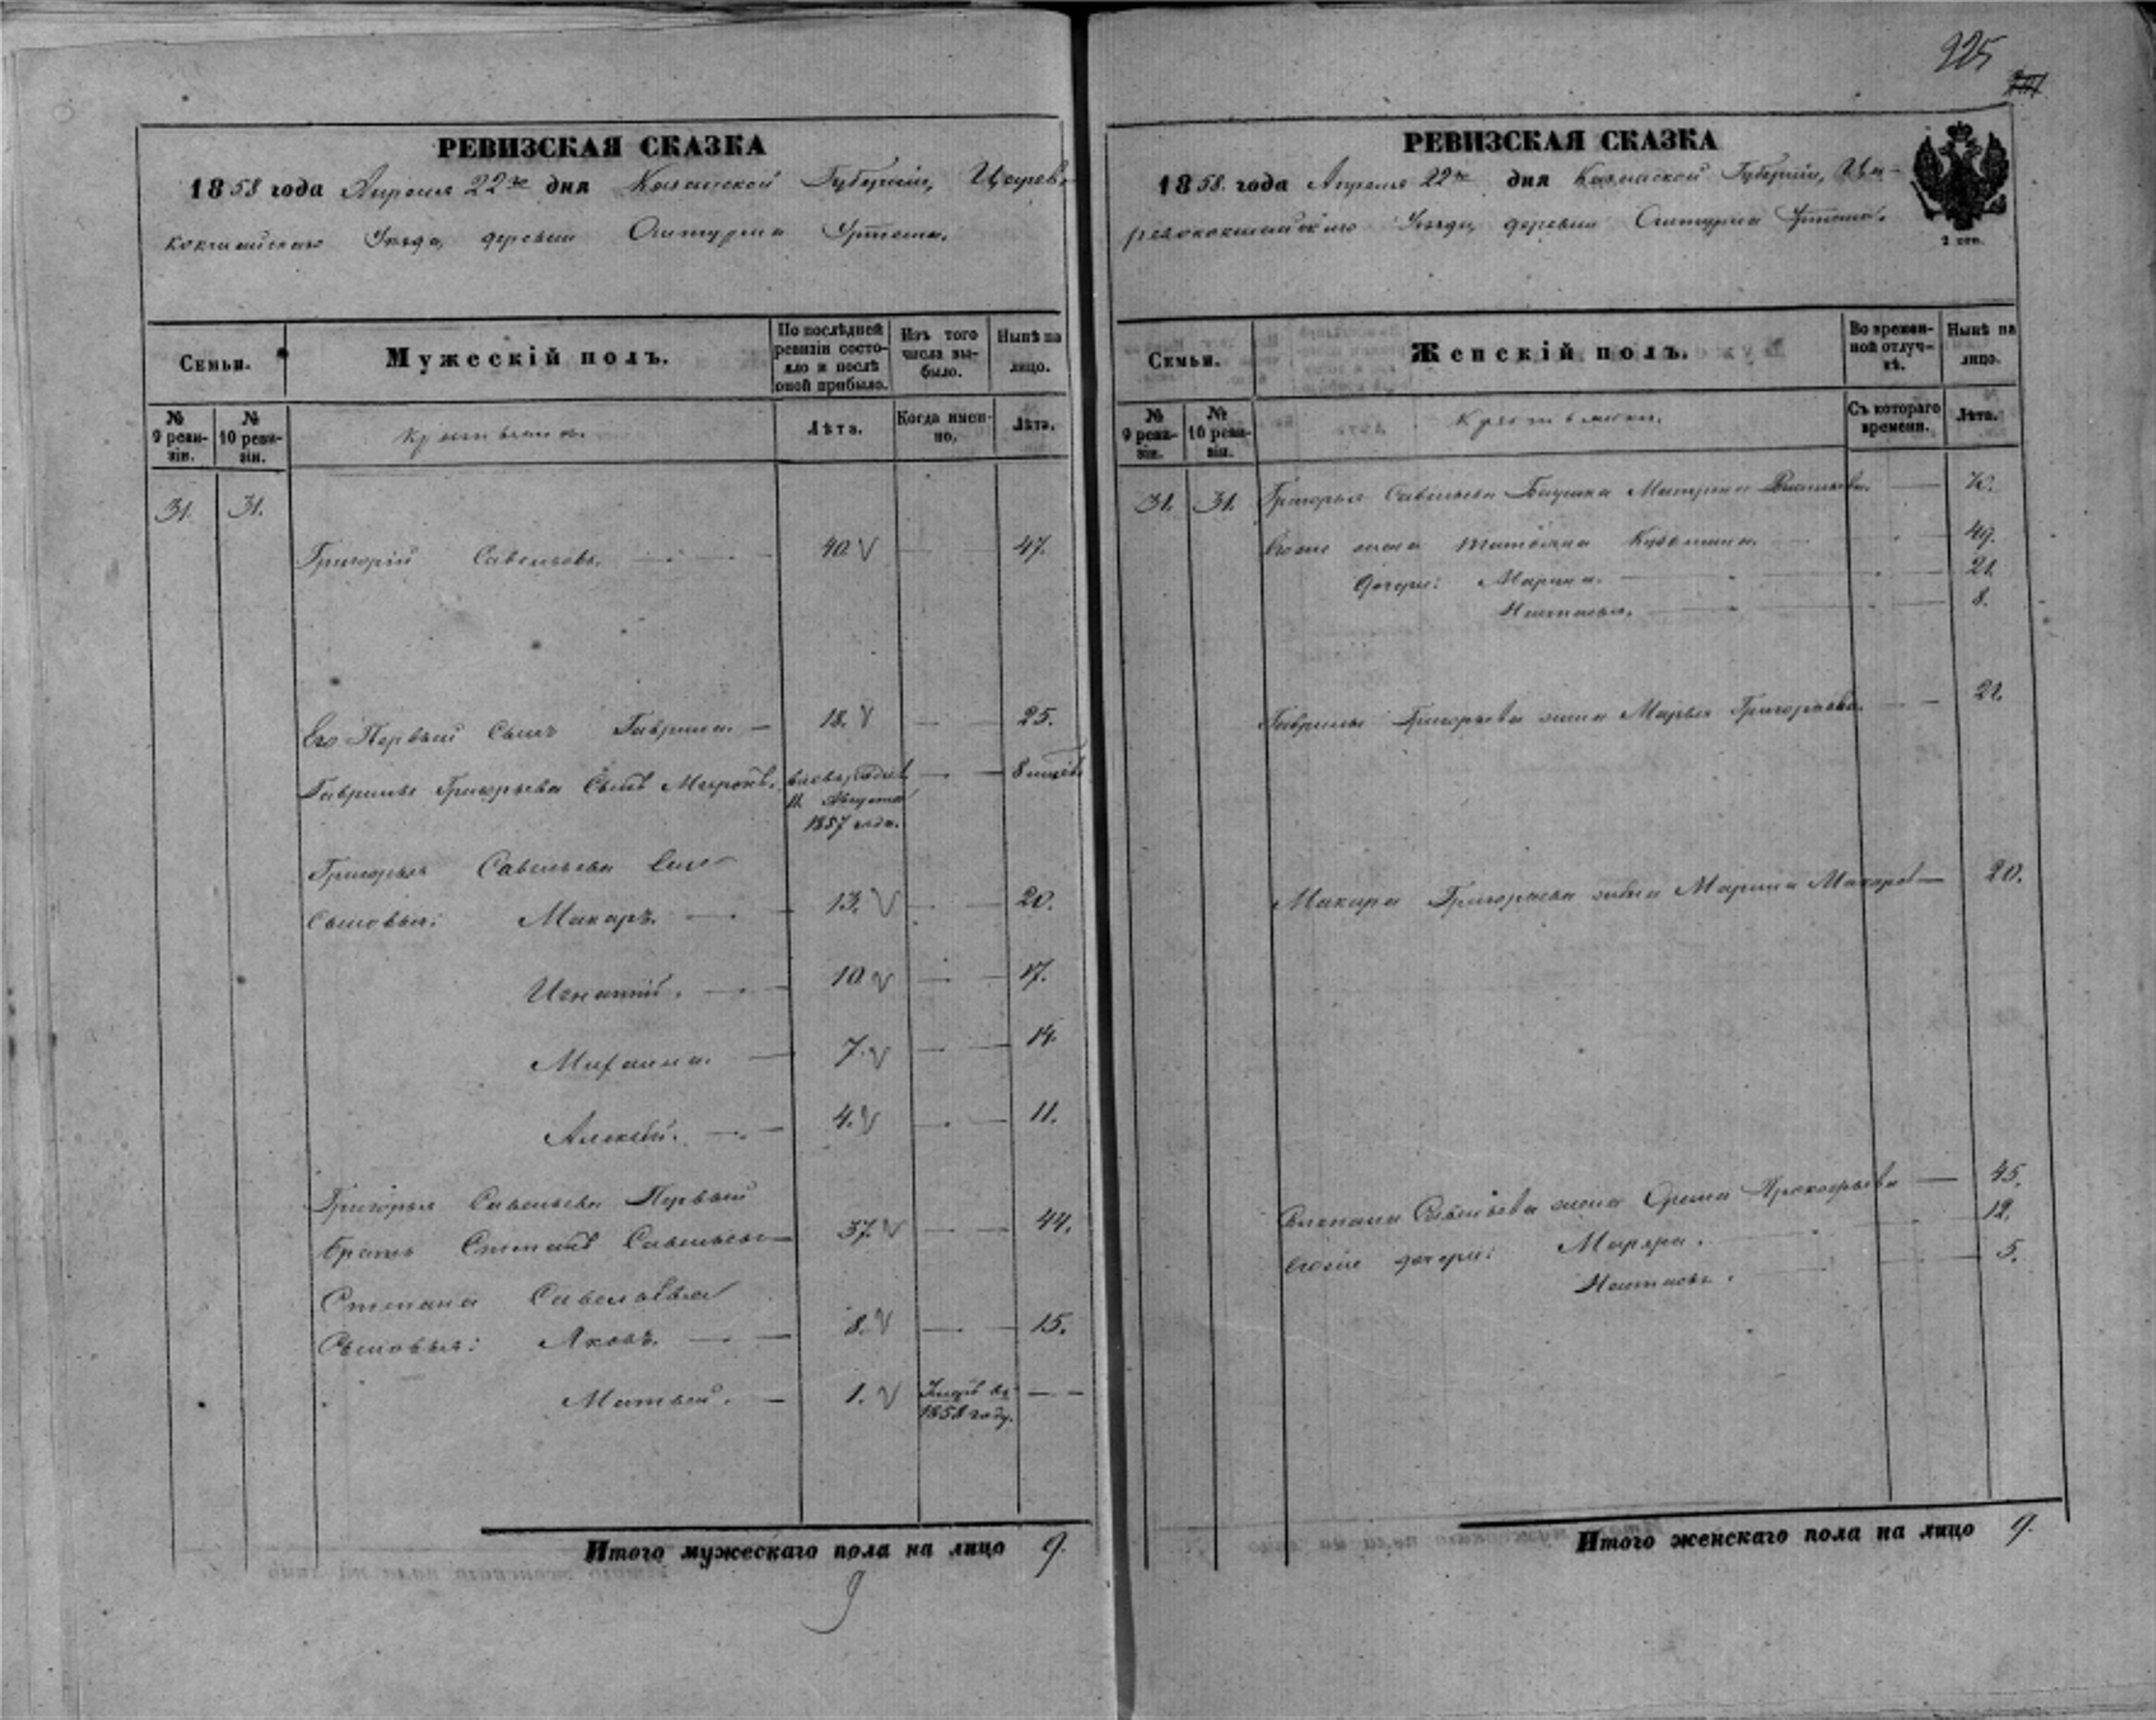 225
РЕВИЗСКАЯ СКАЗКА
1858 года Апреля 22го дня Казанской Губернии, Царево-
кокшайскаго Уезда, деревни
Семьи.
Мужескій полъ.
По послѣдней ревизіи состояло и послѣ оной прибыло.
Изъ того числа выбыло.
Нынѣ на лицо.
№ 9 ревизіи.
№ 10 ревизіи.
Крестьяне.
Лѣта.
Когда именно.
Лѣта.
31. 31.
Григорій Савельевъ. 40 47.
Его Первый Сынъ Гаврила 18. 25.
Гаврилы Григорьева Сынъ Миронъ. 11 Августа 1857 года. 8
Григорья Савельева Еще
Сыновья: Макаръ. 13. 20.
Игнатий. 10 17.
Михаила. 7. 14.
Алексей. 4. 11.
Григорья Савельева Первый
братъ Степанъ Савельевъ 37. 44.
Степана Савельева
Сыновья: Яковъ. 8. 15.
Матвей. 1. 1858 году.
Итого мужескаго пола на лицо 9.
9
РЕВИЗСКАЯ СКАЗКА
1858 года Апреля 22го дня Казанской Губернии, Ца-
ревококшайскаго Уезда, деревни
2 коп.
Семьи.
Женскій полъ.
Во временной отлучкѣ.
Нынѣ на лицо.
№ 9 ревизіи.
№ 10 ревизіи.
Крестьянки.
Съ котораго времени.
Лѣта.
31. 31. Григорья Савельева Матрена 70.
Его же жена Татьяна Кузьмина 49.
дочери: Марина. 21.
Настасья. 8.
Гаврилы Григорьева жена Марья Григорьева.
Макара Григорьева жена Марина Макаров 20.
Степана Савельева жена Прокофьева 45.
Его же дочери: 12.
Настась. 5.
Итого женскаго пола на лицо 9.